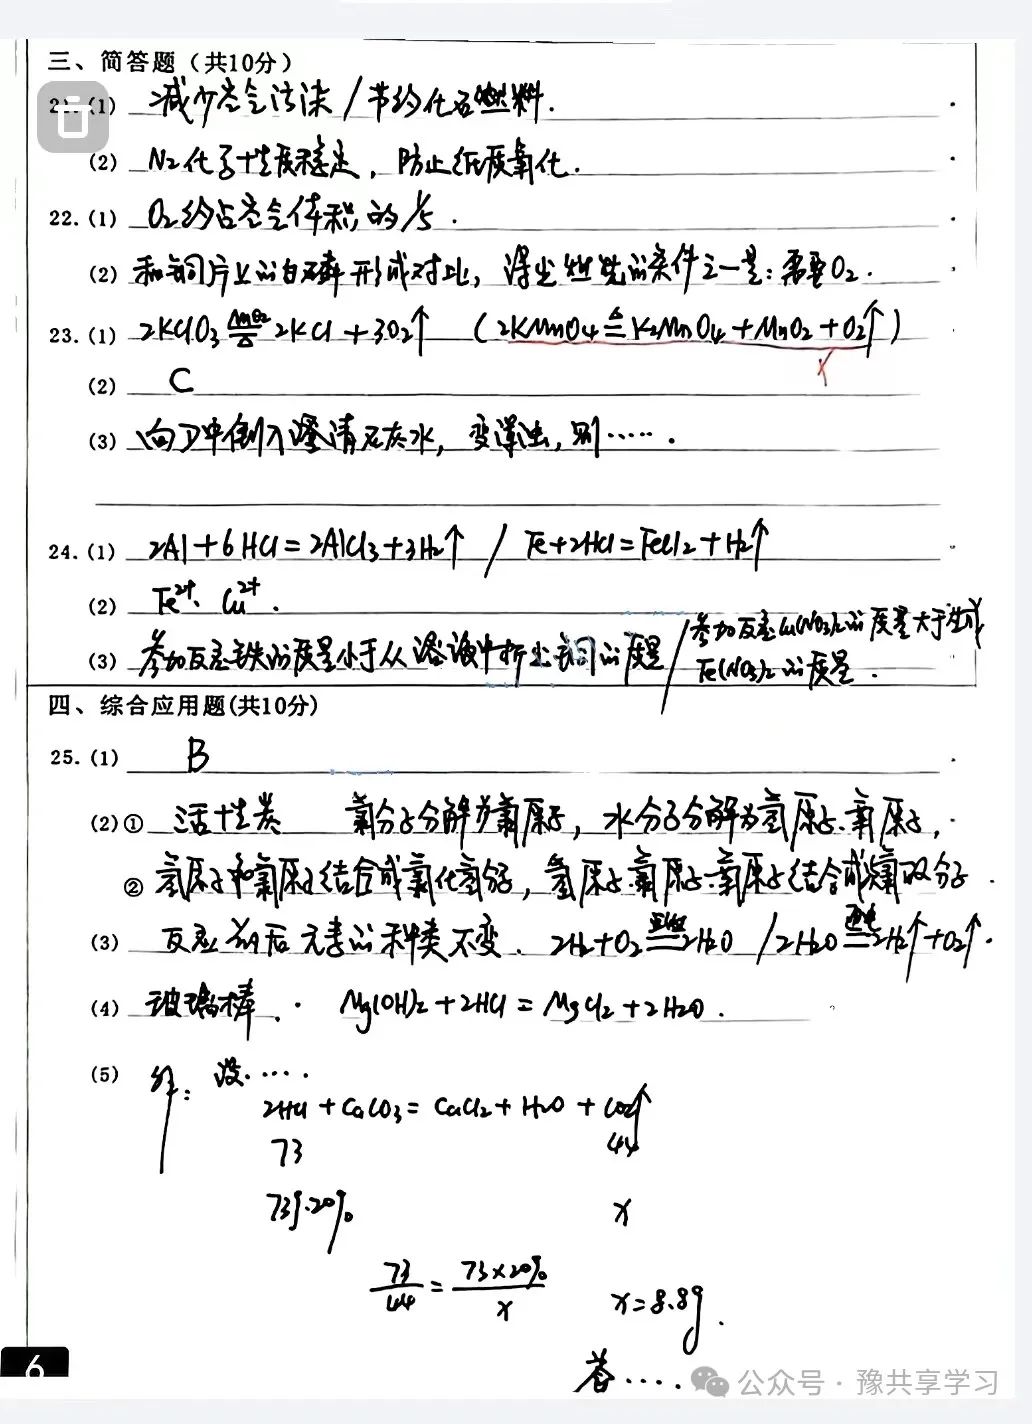 三、简答题（共10分）
21.(1) 减少空气污染 / 节约化石燃料.
(2) N₂化学性质稳定，防止纸质氧化.
22.(1) O₂约占空气体积的1/5.
(2) 和铜片上的白磷形成对比，得出燃烧的条件之一是：需要O₂.
23.(1) 2KClO₃ MnO₂ ═ △ 2KCl + 3O₂↑ (2KMnO₄ △ ═ K₂MnO₄ + MnO₂ + O₂↑)
(2) C
(3) 向D中倒入澄清石灰水，变浑浊，则…….
24.(1) 2Al + 6HCl = 2AlCl₃ + 3H₂↑ / Fe + 2HCl = FeCl₂ + H₂↑
(2) Fe²⁺、Cu²⁺.
(3) 参加反应铁的质量小于从溶液中析出铜的质量 / 参加反应Cu(NO₃)₂的质量大于生成
Fe(NO₃)₂的质量.
四、综合应用题(共10分)
25.(1) B
(2)① 活性炭 氯分子分解为氯原子，水分子分解为氢原子、氧原子，
② 氢原子和氯原子结合成氯化氢分子，氢原子、氯原子、氧原子结合成次氯酸分子.
(3) 反应前后元素的种类不变. 2H₂+O₂ 点燃 ═ 2H₂O / 2H₂O 通电 ═ 2H₂↑+O₂↑.
(4) 玻璃棒. Mg(OH)₂+2HCl = MgCl₂+2H₂O.
(5) 解：设…..
2HCl + CaCO₃ = CaCl₂ + H₂O + CO₂↑
73 44
73g·20% x
73/44 = 73×20%/x x=8.8g.
答….
6
公众号 · 豫共享学习